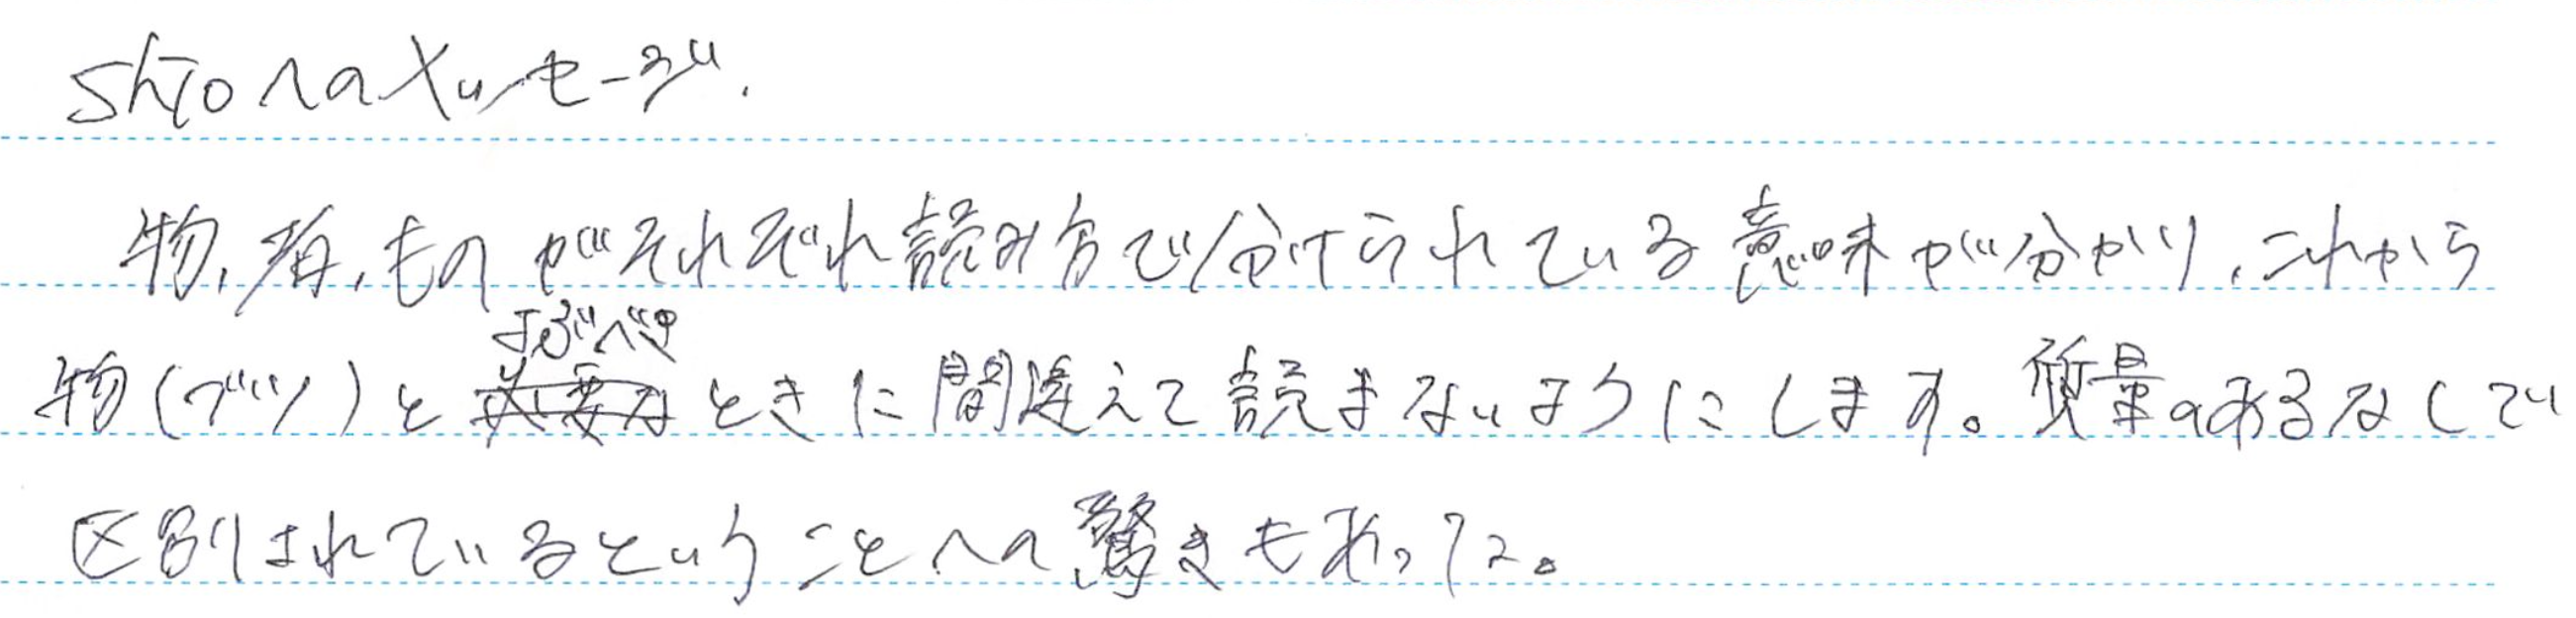 Shioへのメッセージ.
物,者,ものがそれぞれ読み方で分けられている意味が分かり,これから
物(ブツ)とよぶべきときに間違えて読まないようにします。質量のあるなしで
区別されているということへの驚きもあった。